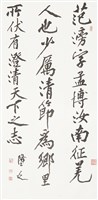 范滂字孟博汝南征羌
人也少厲清節為鄉里
所伏有澄清天下之志